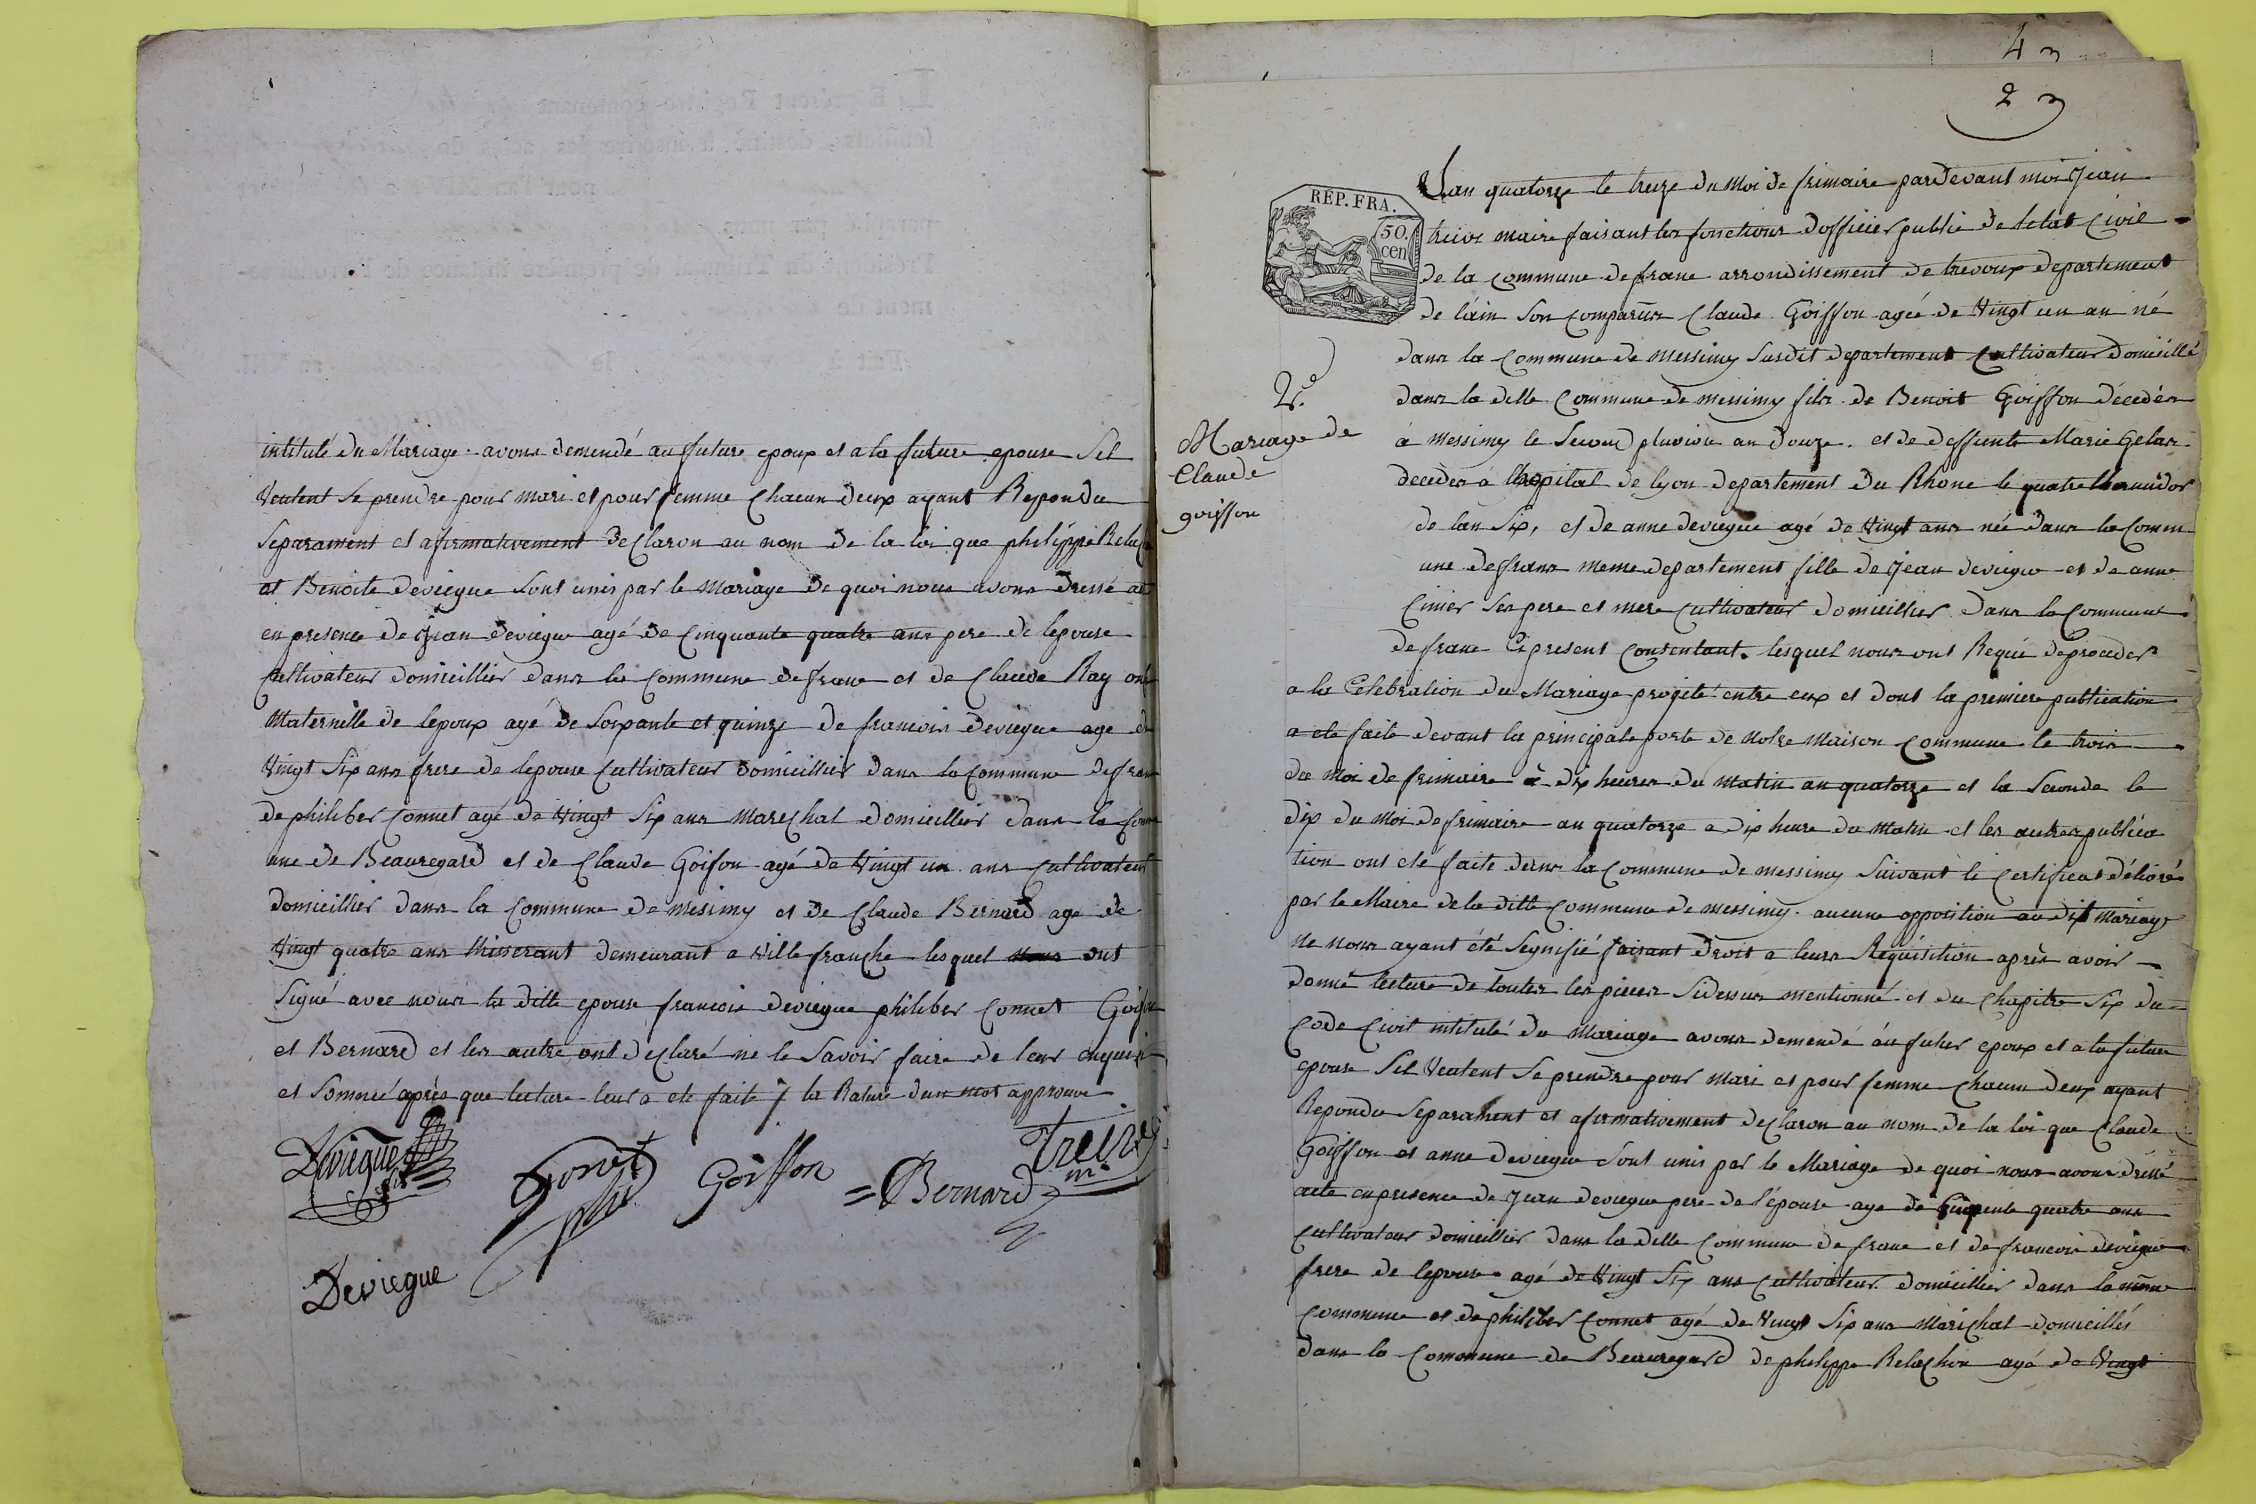 intitulé du Mariage avons demendé au future epoux et a la future epouse Sil
Veulent Se prendre pour mari et pour femme Chacun deux ayant Repondu
Separament et afirmativement declaron au nom de la loi que philippe
et Benoite deviegue sont unis par le Mariage de quoi nous avons dressé
en presence de Jean deviegue agé de Cinquante quatre ans pere de lepouse
Cultivateur domicillier dans la Commune de frane et de Claude Ray
Maternelle de lepoux agé de Soixante et quinze de francois deviegue age
Vingt Six ans frere de lepouse Cultivateur domicillier dans la Commune de
de philiber Connet agé de Vingt Six ans Marechal domicillier dans la
une de Beauregard et de Claude Goifon agé de Vingt un ans Cultivateur
domicillier dans la Commune de mesimy et de Claude Bernard age de
Vingt quatre ans demeurant a Villefranche lesquel nous ont
Signé avec nous la ditte epouse francois deviegue philiber Connet
et Bernard et les autre ont déclaré ne le Savoir faire de leur
et Sommé après que lecture leur a ete faite / la Rature dun mot approuve
Deviegue
Conet
phi
Goiffon
= Bernard
Treive
me
Deviegue
4
2
REP. FRA.
50.
cen
2e
Mariage de
Claude
goiffon
Lan quatorze le treize du Moi de frimaire pardevant moi Jean
treive maire faisant les fonctions dofficier public de letat Civil
de la Commune de frane arrondissement de trevoux departement
de l'ain Son comparus Claude Goiffon agée de Vingt un an né
dans la Commune de messimy Susdit departement Cultivateur domicillé
dans la ditte Commune de messimy fils de Benoit Goiffon décédés
à Messimy le Second pluviose an douze. et de deffunte Marie Gelas
décédés a lhopital de lyon departement du Rhone le quatre
de lan Six, et de anne deviegue agé de Vingt ans née dans la Comm
une de frans meme departement fille de Jean deviegue et de anne
Cimier Ses pere et mere Cultivateur domicillier dans la Commune
de frane Ci present Consentant. lesquel nous ont Requi de proceder
a la Celebration du Mariage projeté entre eux et dont la premiere publication
a ete faite devant la principale porte de Notre Maison Commune le trois
du Moi de frimaire à dix heures du Matin an quatorze et la Seconde le
dix du Moi de frimaire an quatorze a dix heure du Matin et les autres publica
tion ont eté faite dans la Commune de messimy Suivant le Certificat délivré
par le Maire de la ditte Commune de messimy. aucune opposition au dit Mariage
ne nous ayant été Segnifié faisant droit a leurs Réquisition après avoir
donné lecture de toutes les pieces Sidessus mentionné et du Chapitre Six du
Code Civil intitulé du Mariage avons demendé áu futur epoux et a la future
epouse Sil Veulent Se prendre pour Mari et pour femme Chacun deux ayant
Repondu Separament et afirmativement declaron au nom de la loi que Claude
Goiffon et anne deviegue Sont unis par le Mariage de quoi nous avons dréssé
acte en presence de Jean deviegue pere de l'épouse age de Cinquente quatre ans
Cultivateur domicillier dans la ditte Commune de frane et de francois deviegue
frere de lepouse agé de Vingt Six ans Cultivateur domicillier dans la meme
Commune et de philiber Connet agé de Vingt Six ans Maréchal domicillés
dans la Commune de Beauregard de philippe Relachon agé de Vingt